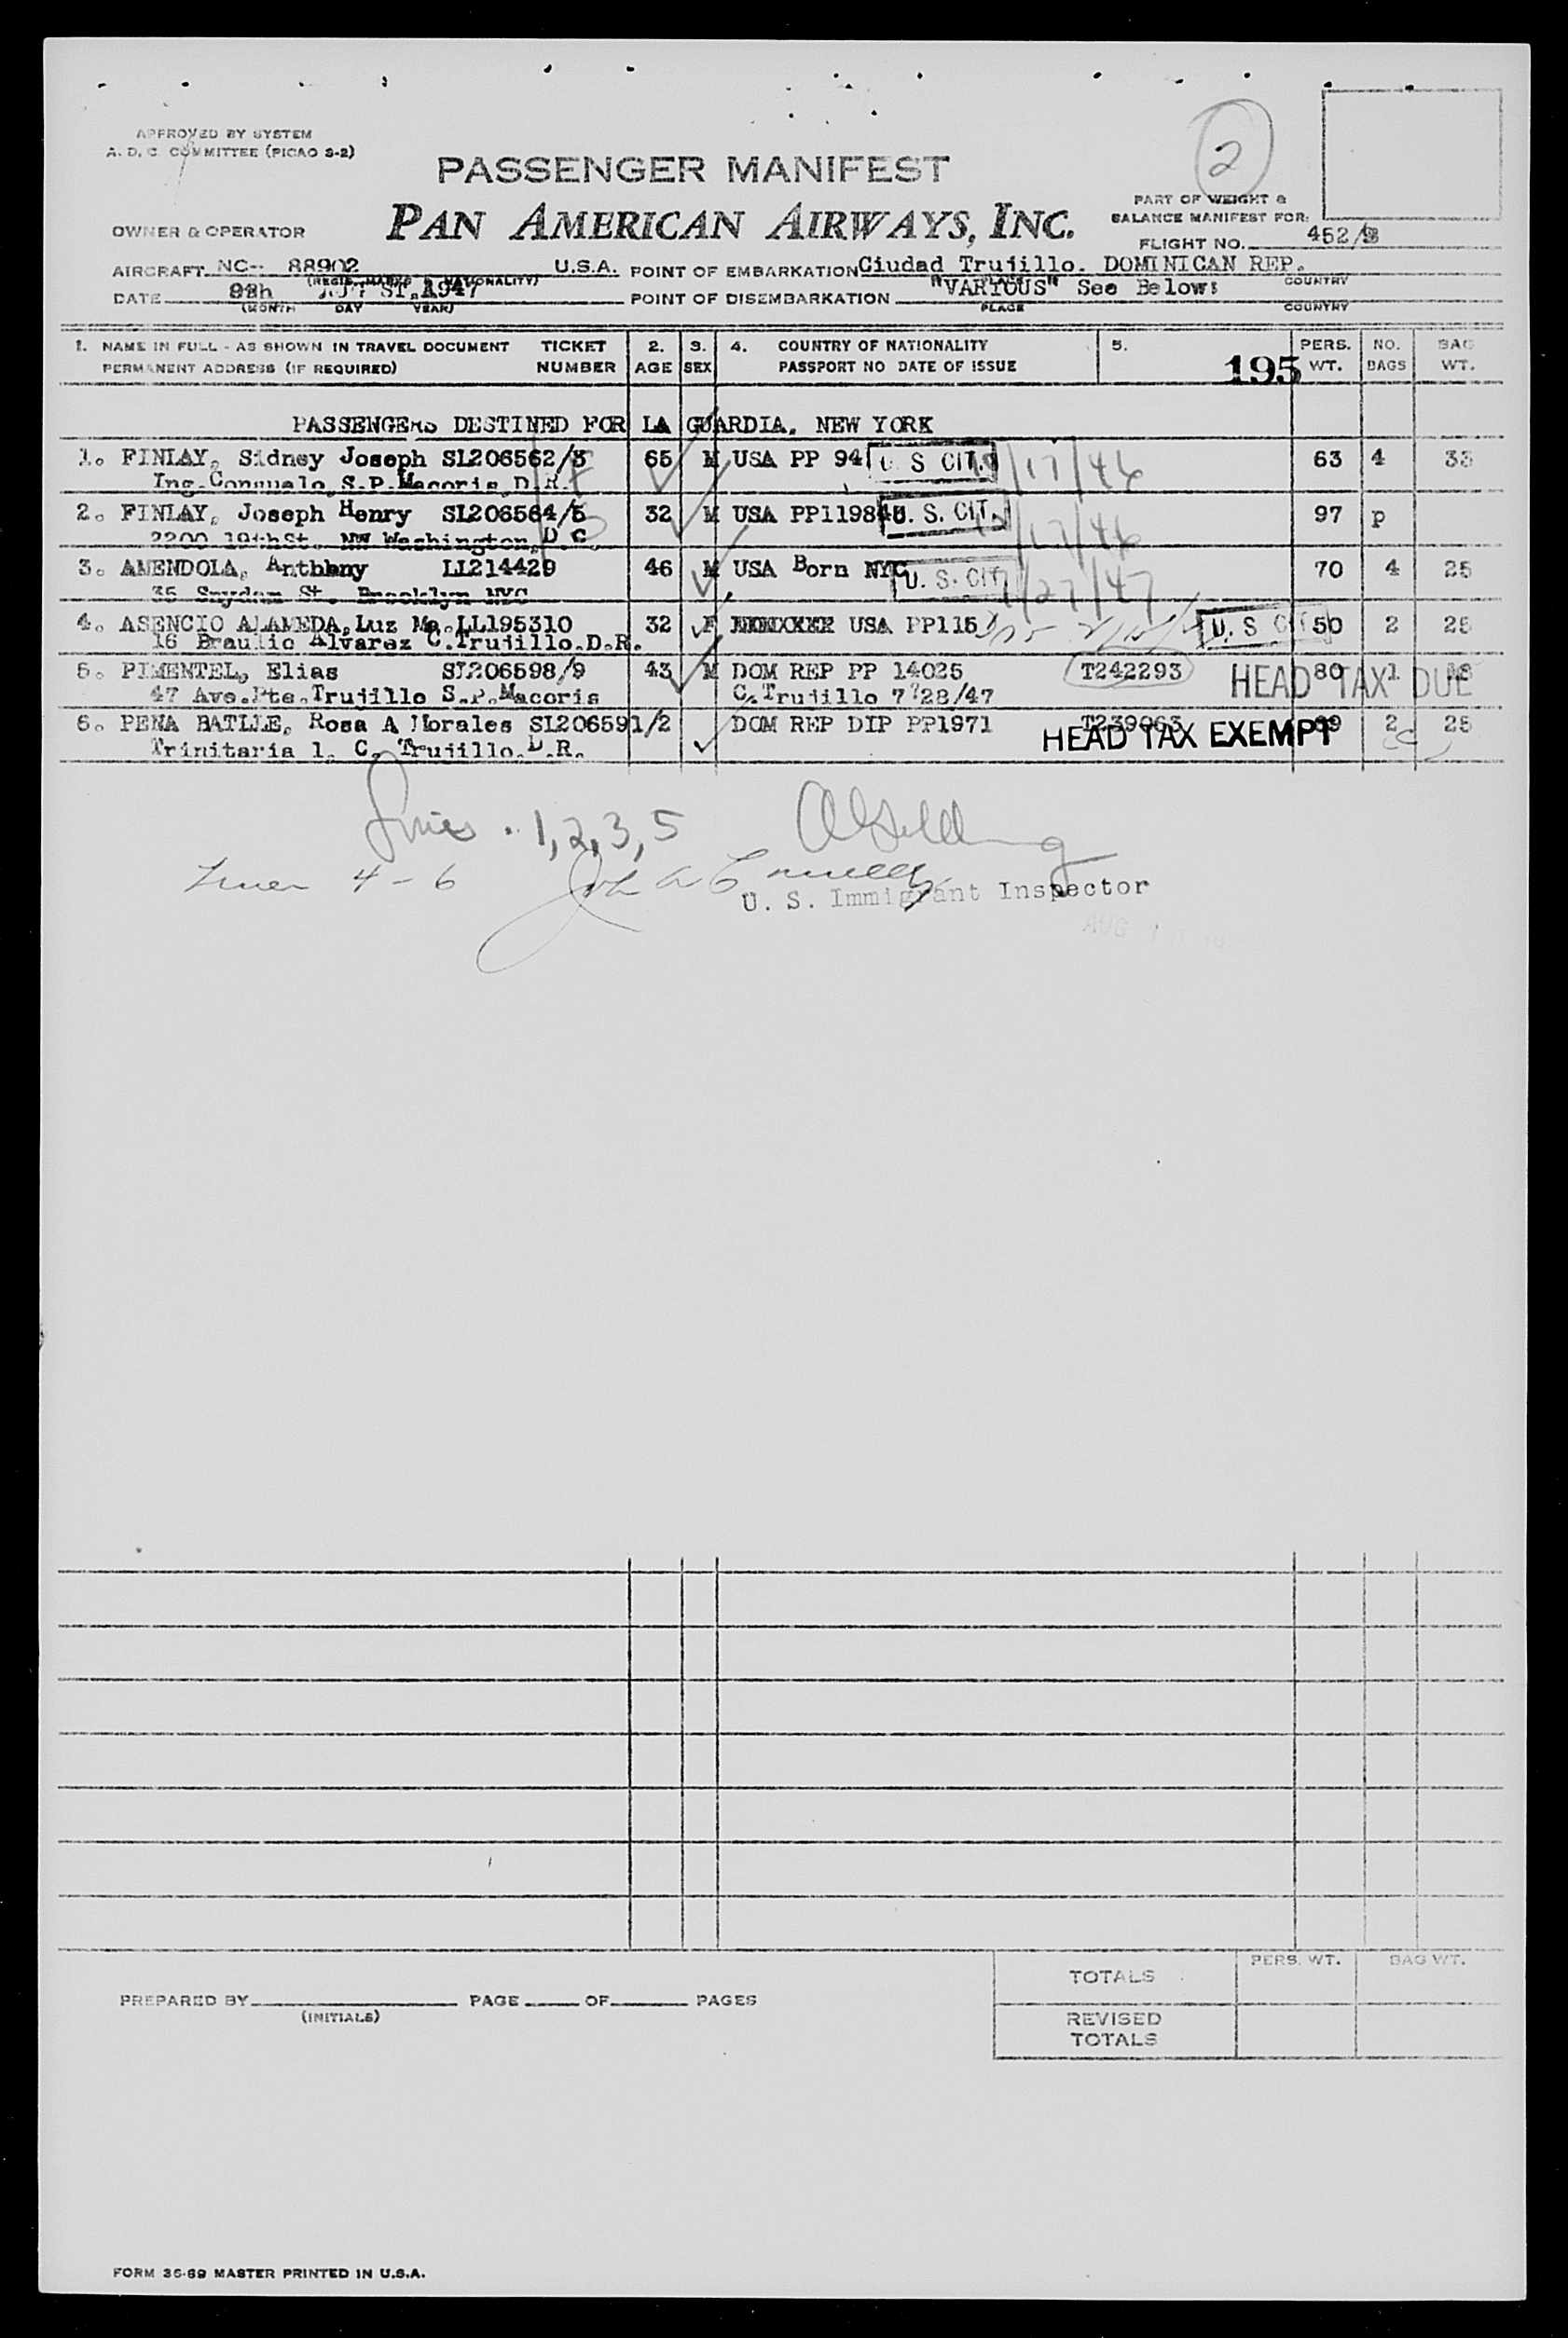 APPROVED BY SYSTEM
A. D. C. COMMITTEE (PICAO S-2)
2
PASSENGER MANIFEST
PART OF WEIGHT &
BALANCE MANIFEST FOR:
OWNER & OPERATOR PAN AMERICAN AIRWAYS, INC.
FLIGHT NO. 452/
AIRCRAFT NC-- 88902 U.S.A. POINT OF EMBARKATION Ciudad Trujillo. DOMINICAN REP.
(REGIS. MARKS & NATIONALITY) COUNTRY
DATE 1947 POINT OF DISEMBARKATION "VARIOUS" See Below:
(MONTH DAY YEAR) PLACE COUNTRY
1. NAME IN FULL - AS SHOWN IN TRAVEL DOCUMENT TICKET 2. 3. 4. COUNTRY OF NATIONALITY 5. PERS. NO. BAG
PERMANENT ADDRESS (IF REQUIRED) NUMBER AGE SEX PASSPORT NO DATE OF ISSUE 195 WT. BAGS WT.
PASSENGERS DESTINED FOR LA GUARDIA, NEW YORK
1. FINLAY, Sidney Joseph SL206562/3 65 M USA PP 94 U S CIT. /17/46 63 4 33
Ing. Consuelo, S.P. Macoris, D.R.
2. FINLAY, Joseph Henry SL206564/5 32 M USA PP11984 U. S. CIT. /17/46 97 p
2200 19thSt. NW Washington, D.C.
3. AMENDOLA, Anthony LL214429 46 M USA Born NYC U. S. CIT. /27/47 70 4 25
35 Snydam St. Brooklyn NYC
4. ASENCIO ALAMEDA, Luz Ma. LL195310 32 F USA PP115 U. S CIT 50 2 25
16 Braulio Alvarez C. Trujillo. D.R.
5. PIMENTEL, Elias SL206598/9 43 M DOM REP PP 14025 T242293 HEAD TAX DUE 80 1
47 Ave. Pte. Trujillo S.P. Macoris C. Trujillo 7?28/47
6. PENA BATLLE, Rosa A Morales SL206591/2 DOM REP DIP PP1971 T239063 HEAD TAX EXEMPT 2 25
Trinitaria 1. C. Trujillo. D.R.
Lines 1, 2, 3, 5
Lines 4 - 6 John
U. S. Immigrant Inspector
AUG
PERS. WT. BAG WT.
TOTALS
PREPARED BY PAGE OF PAGES
(INITIALS)
REVISED
TOTALS
FORM 36-69 MASTER PRINTED IN U.S.A.